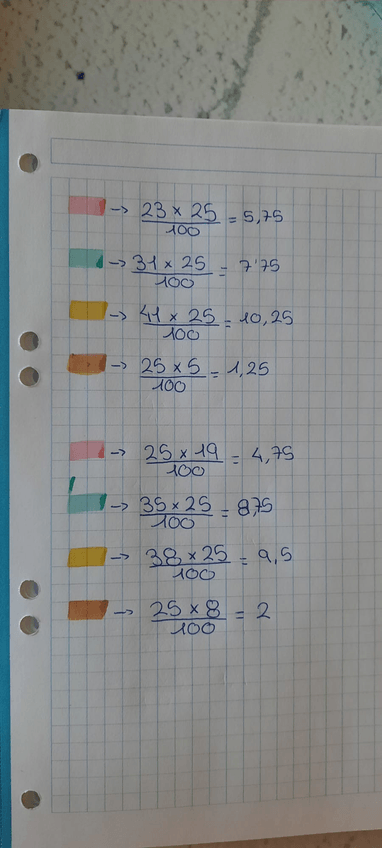 → 23 x 25 / 100 = 5,75
→ 31 x 25 / 100 = 7'75
→ 41 x 25 / 100 = 10,25
→ 25 x 5 / 100 = 1,25
→ 25 x 19 / 100 = 4,75
→ 35 x 25 / 100 = 8,75
→ 38 x 25 / 100 = 9,5
→ 25 x 8 / 100 = 2